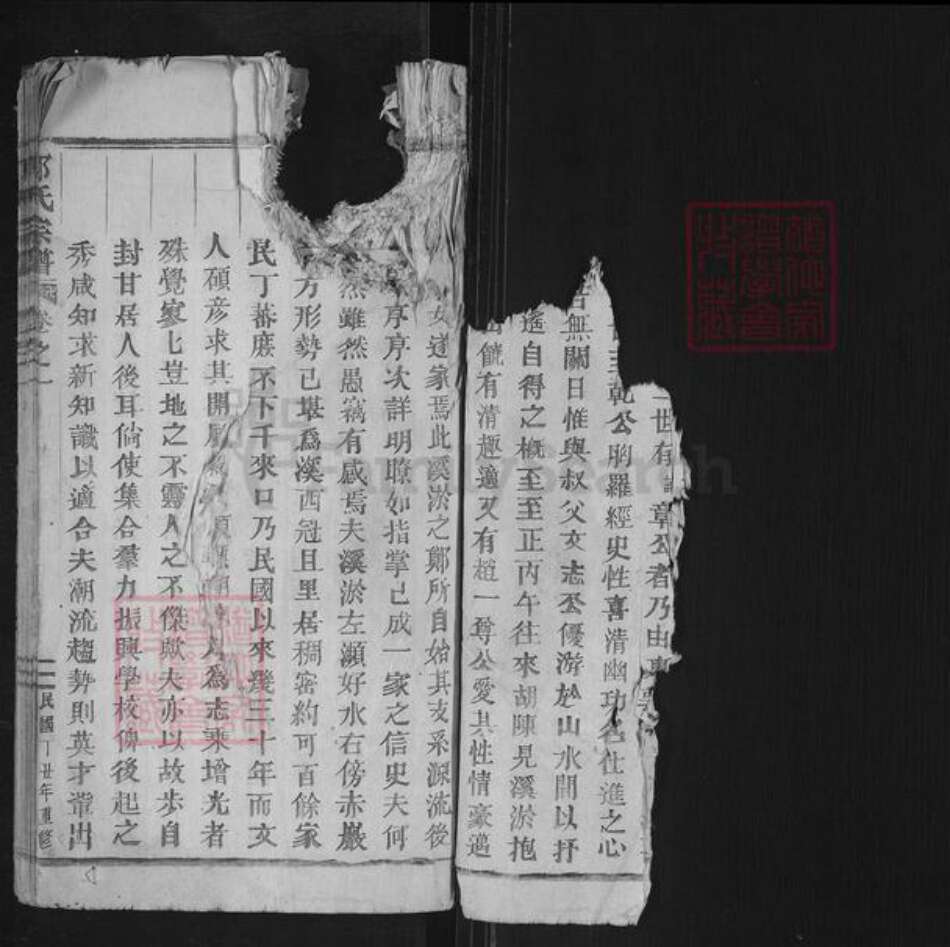 世有 章公者乃由
乾公胸羅經史性喜清幽功名仕進之心
無關日惟與叔父文志公優游於山水間以抒
遙自得之概至至正丙午往來胡陳見溪淤抱
饒有清趣適又有趙一尊公愛其性情豪邁
女適家焉此溪淤之鄭所自始其支系源流後
序序次詳明瞭如指掌已成一家之信史夫何
然雖然愚竊有感焉夫溪淤左瀕好水右傍赤巖
方形勢已堪為溪西冠且里居稠密約可百餘家
民丁蕃庶不下千來口乃民國以來幾三十年而文
人碩彥求其開 為志乘增光者
殊覺寥七豈地之不靈人之不傑歟夫亦以故步自
封甘居人後耳倘使集合羣力振興學校俾後起之
秀咸知求新知識以適合夫潮流趨勢則英才輩出
氏宗譜 卷之一
民國丁丑年重修
FamilySearch